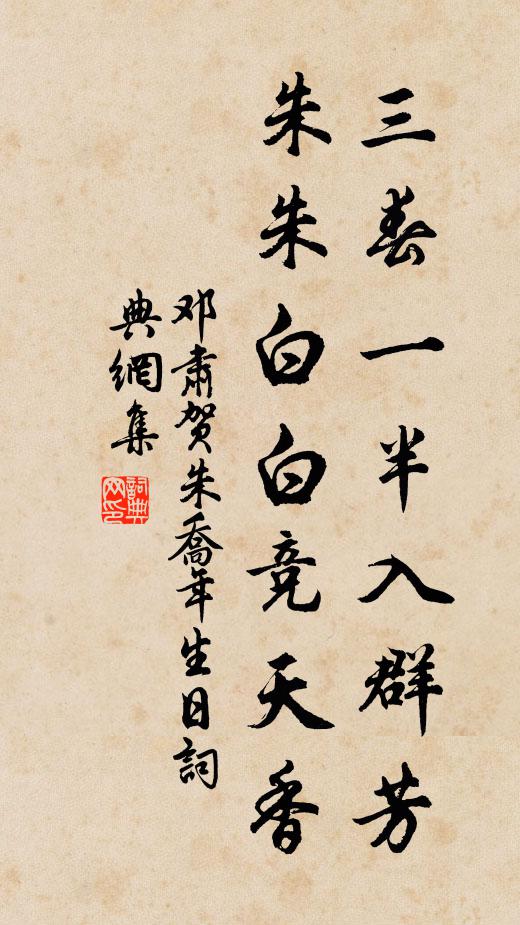 三春一半入群芳
朱朱白白竞天香
邓肃贺朱喬年生日詞
典網集
詞典网印